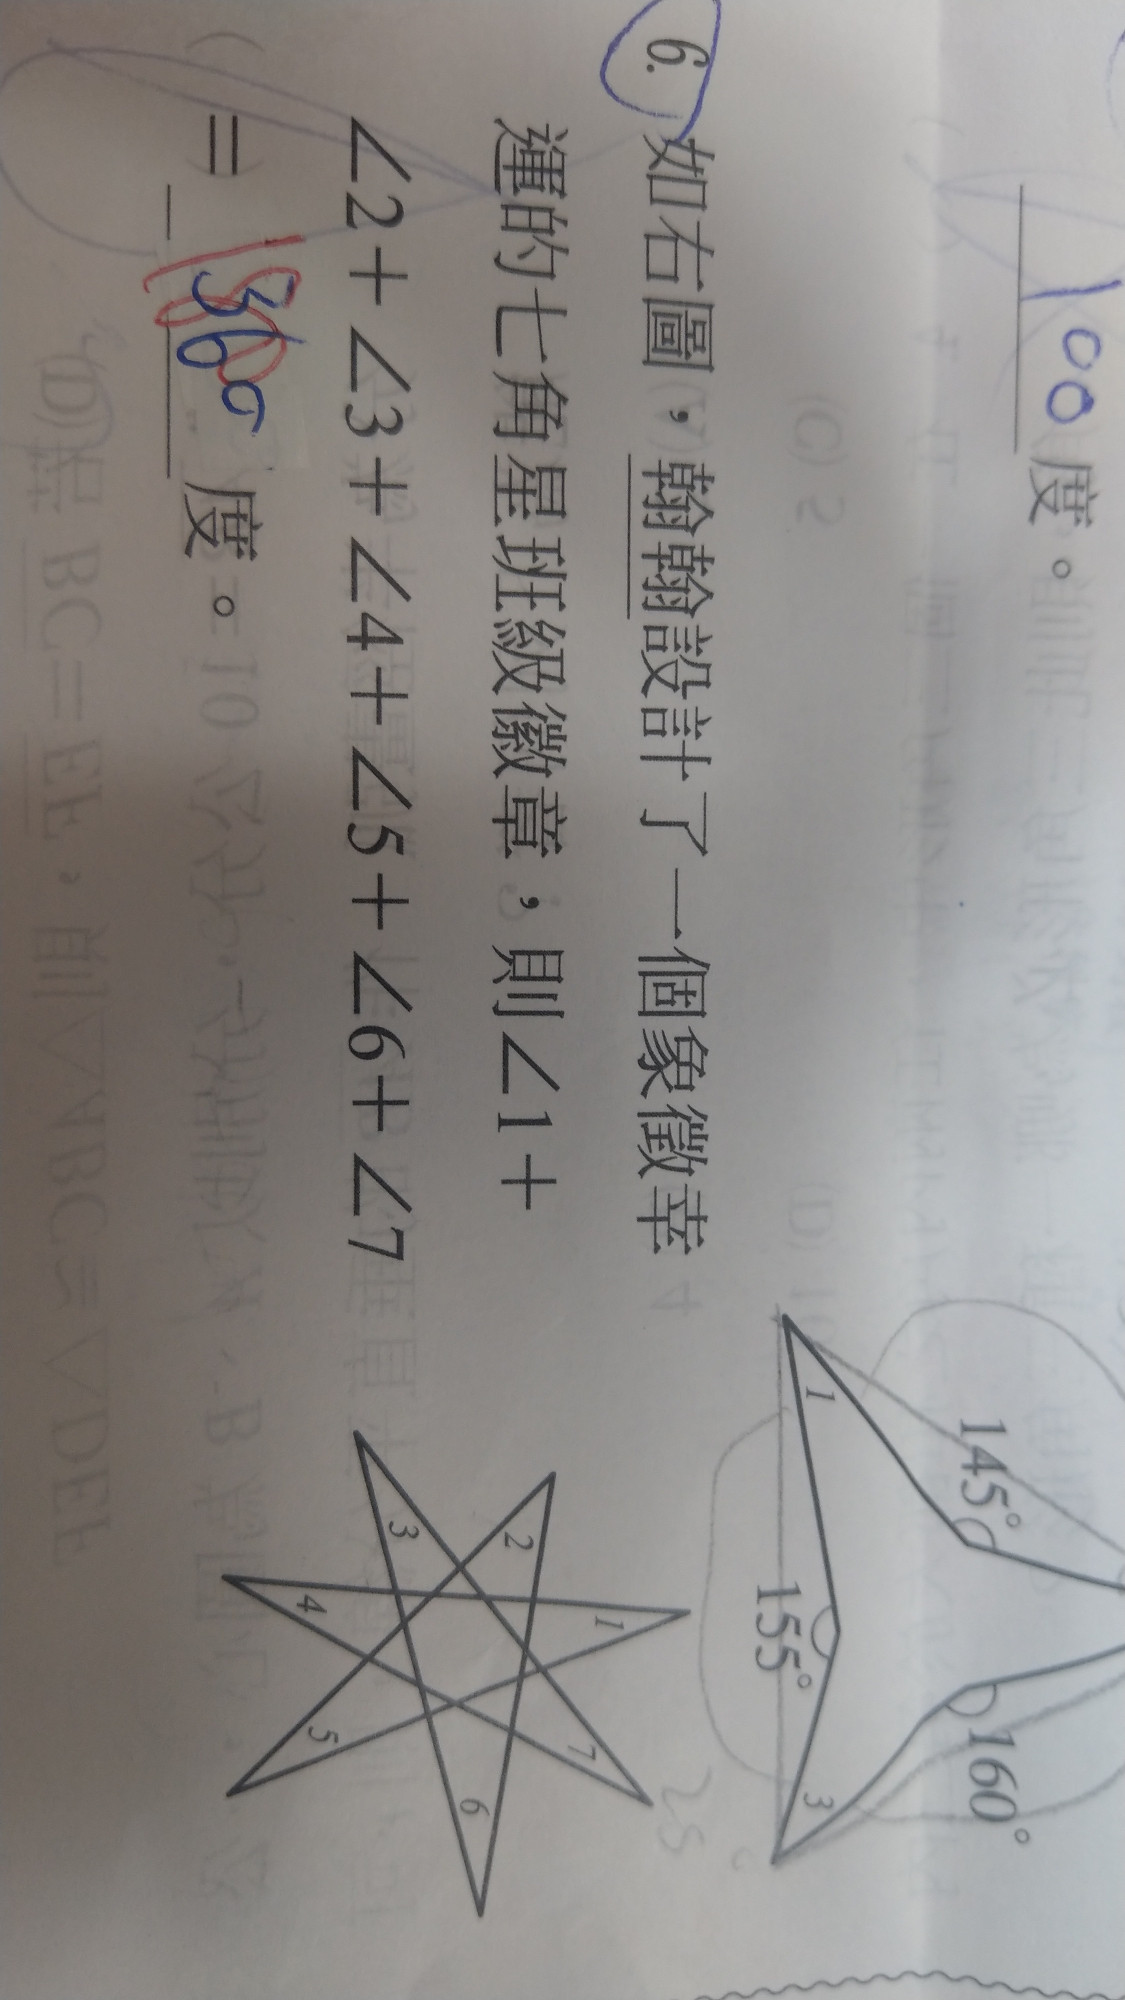 100度。
6. 如右圖，翰翰設計了一個象徵幸
運的七角星班級徽章，則∠1＋
∠2＋∠3＋∠4＋∠5＋∠6＋∠7
＝360度。
145°
160°
155°
1
3
1
2
3
4
5
6
7
25